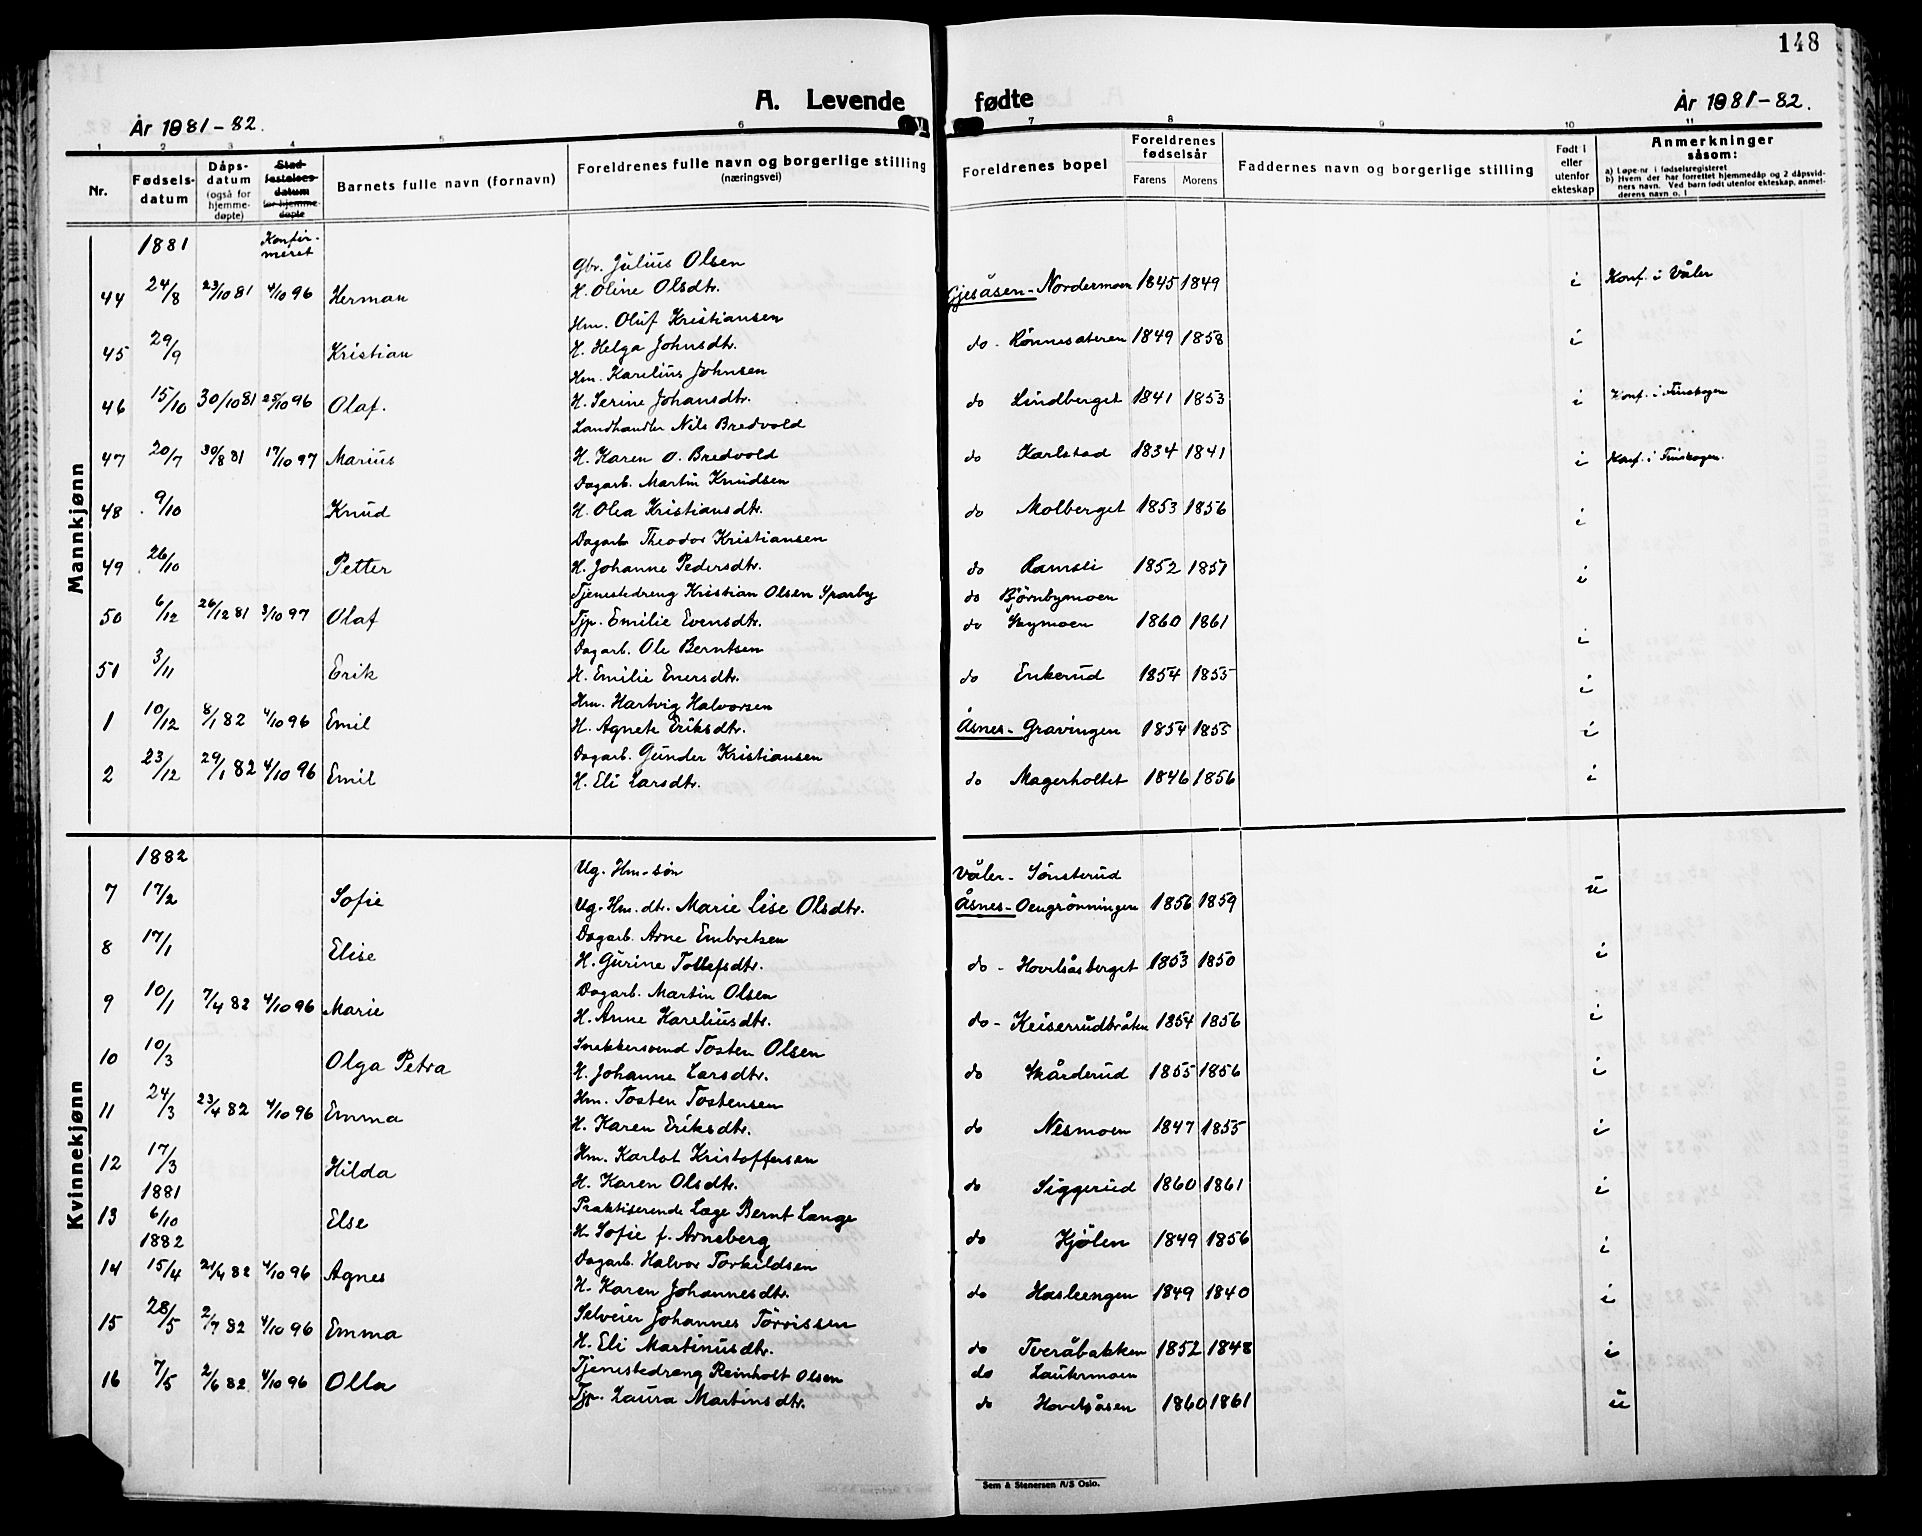 148
A. Levende fødte
År 1881-82.
År 1881-82.
1 2 3 4 5 6 7 8 9 10 11
Nr. | Fødsels-datum | Dåps-datum (også for hjemme-døpte) | Stadfestelses-datum for hjemme-døpte | Barnets fulle navn (fornavn) | Foreldrenes fulle navn og borgerlige stilling (næringsvei) | Foreldrenes bopel | Foreldrenes fødselsår Farens Morens | Faddernes navn og borgerlige stilling | Født i eller utenfor ekteskap | Anmerkninger såsom: a) Løpe-nr. i fødselsregisteret b) Hvem der har forrettet hjemmedåp og 2 dåpsvidners navn. Ved barn født utenfor ekteskap, anmelderens navn o. l
Mannkjønn
1881 Konfirmeret
Gbr. Julius Olsen
44 24/8 23/10 81 4/10 96 Herman H. Oline Olsdtr. Gjesåsen - Nordermoen 1845 1849 i Konf. i Våler
Hm. Oluf Kristiansen
45 29/9 Kristian H. Helga Johnsdtr. do - Rønnesæteren 1849 1858 i
Hm. Karelius Johnsen
46 15/10 30/10 81 25/10 96 Olaf. H. Serine Johansdtr. do Lindberget 1841 1853 i Konf. i Finskogen
Landhandler Nils Bredvold
47 20/7 30/8 81 17/10 97 Marius H. Karen O. Bredvold do Karlstad 1834 1841 i Konf. i Finskogen.
Dagarb. Martin Knudsen
48 9/10 Knud H. Olea Kristiansdtr. do Molberget 1853 1856 i
Dagarb Theodor Kristiansen
49 26/10 Petter H. Johanne Pedersdtr. do Ramsli 1852 1857 i
Tjenestedreng Kristian Olsen Sparby do Bjørnbymoen
50 6/12 26/12 81 3/10 97 Olaf Tjp. Emilie Evensdtr. do Skymoen 1860 1861 i
Dagarb. Ole Berntsen
51 3/11 Erik H. Emilie Enersdtr. do Enkerud 1854 1855 i
Hm. Hartvig Halvorsen
1 10/12 8/1 82 4/10 96 Emil H. Agnete Eriksdtr. Åsnes - Gravingen 1854 1855 i
Dagarb. Gunder Kristiansen
2 23/12 29/1 82 4/10 96 Emil H. Eli Larsdtr. do Magerholtet 1846 1856 i
Kvinnekjønn
1882 Ug. Hm-søn Våler - Sønsterud
7 17/2 Sofie Ug. Hm. dtr. Marie Lise Olsdtr. Åsnes - Oengrønningen 1856 1859 u
Dagarb. Arne Embretsen
8 17/1 Elise H. Gurine Tollefsdtr. do - Hovelsåsberget 1853 1850 i
Dagarb. Martin Olsen
9 10/1 7/4 82 4/10 96 Marie H. Anne Kareliusdtr. do - Keiserrudbråten 1854 1856 i
Snekkersvend Tosten Olsen
10 10/3 Olga Petra H. Johanne Larsdtr. do Skårderud 1855 1856 i
Hm. Tosten Tostensen
11 24/3 23/4 82 4/10 96 Emma H. Karen Eriksdtr. do Nesmoen 1847 1855 i
Hm. Karlot Kristoffersen
12 17/3 Hilda H. Karen Olsdtr. do Siggerud 1860 1861 i
1881 Praktiserende Læge Bernt Lange
13 6/10 Else H. Sofie f. Arneberg do Kjølen 1849 1856 i
1882 Dagarb. Halvor Torkildsen
14 15/4 21/4 82 4/10 96 Agnes H. Karen Johannesdtr. do Hasleengen 1849 1840 i
Selveier Johannes Törrissen
15 28/5 2/7 82 4/10 96 Emma H. Eli Martinusdtr. do Tveråbakken 1852 1848 i
Tjenestedreng Reinholt Olsen do Lautermoen
16 7/5 2/6 82 4/10 96 Olla Tjp. Laura Martinsdtr. do Hovelsåsen 1860 1861 u
Sem & Stenersen A/S Oslo.